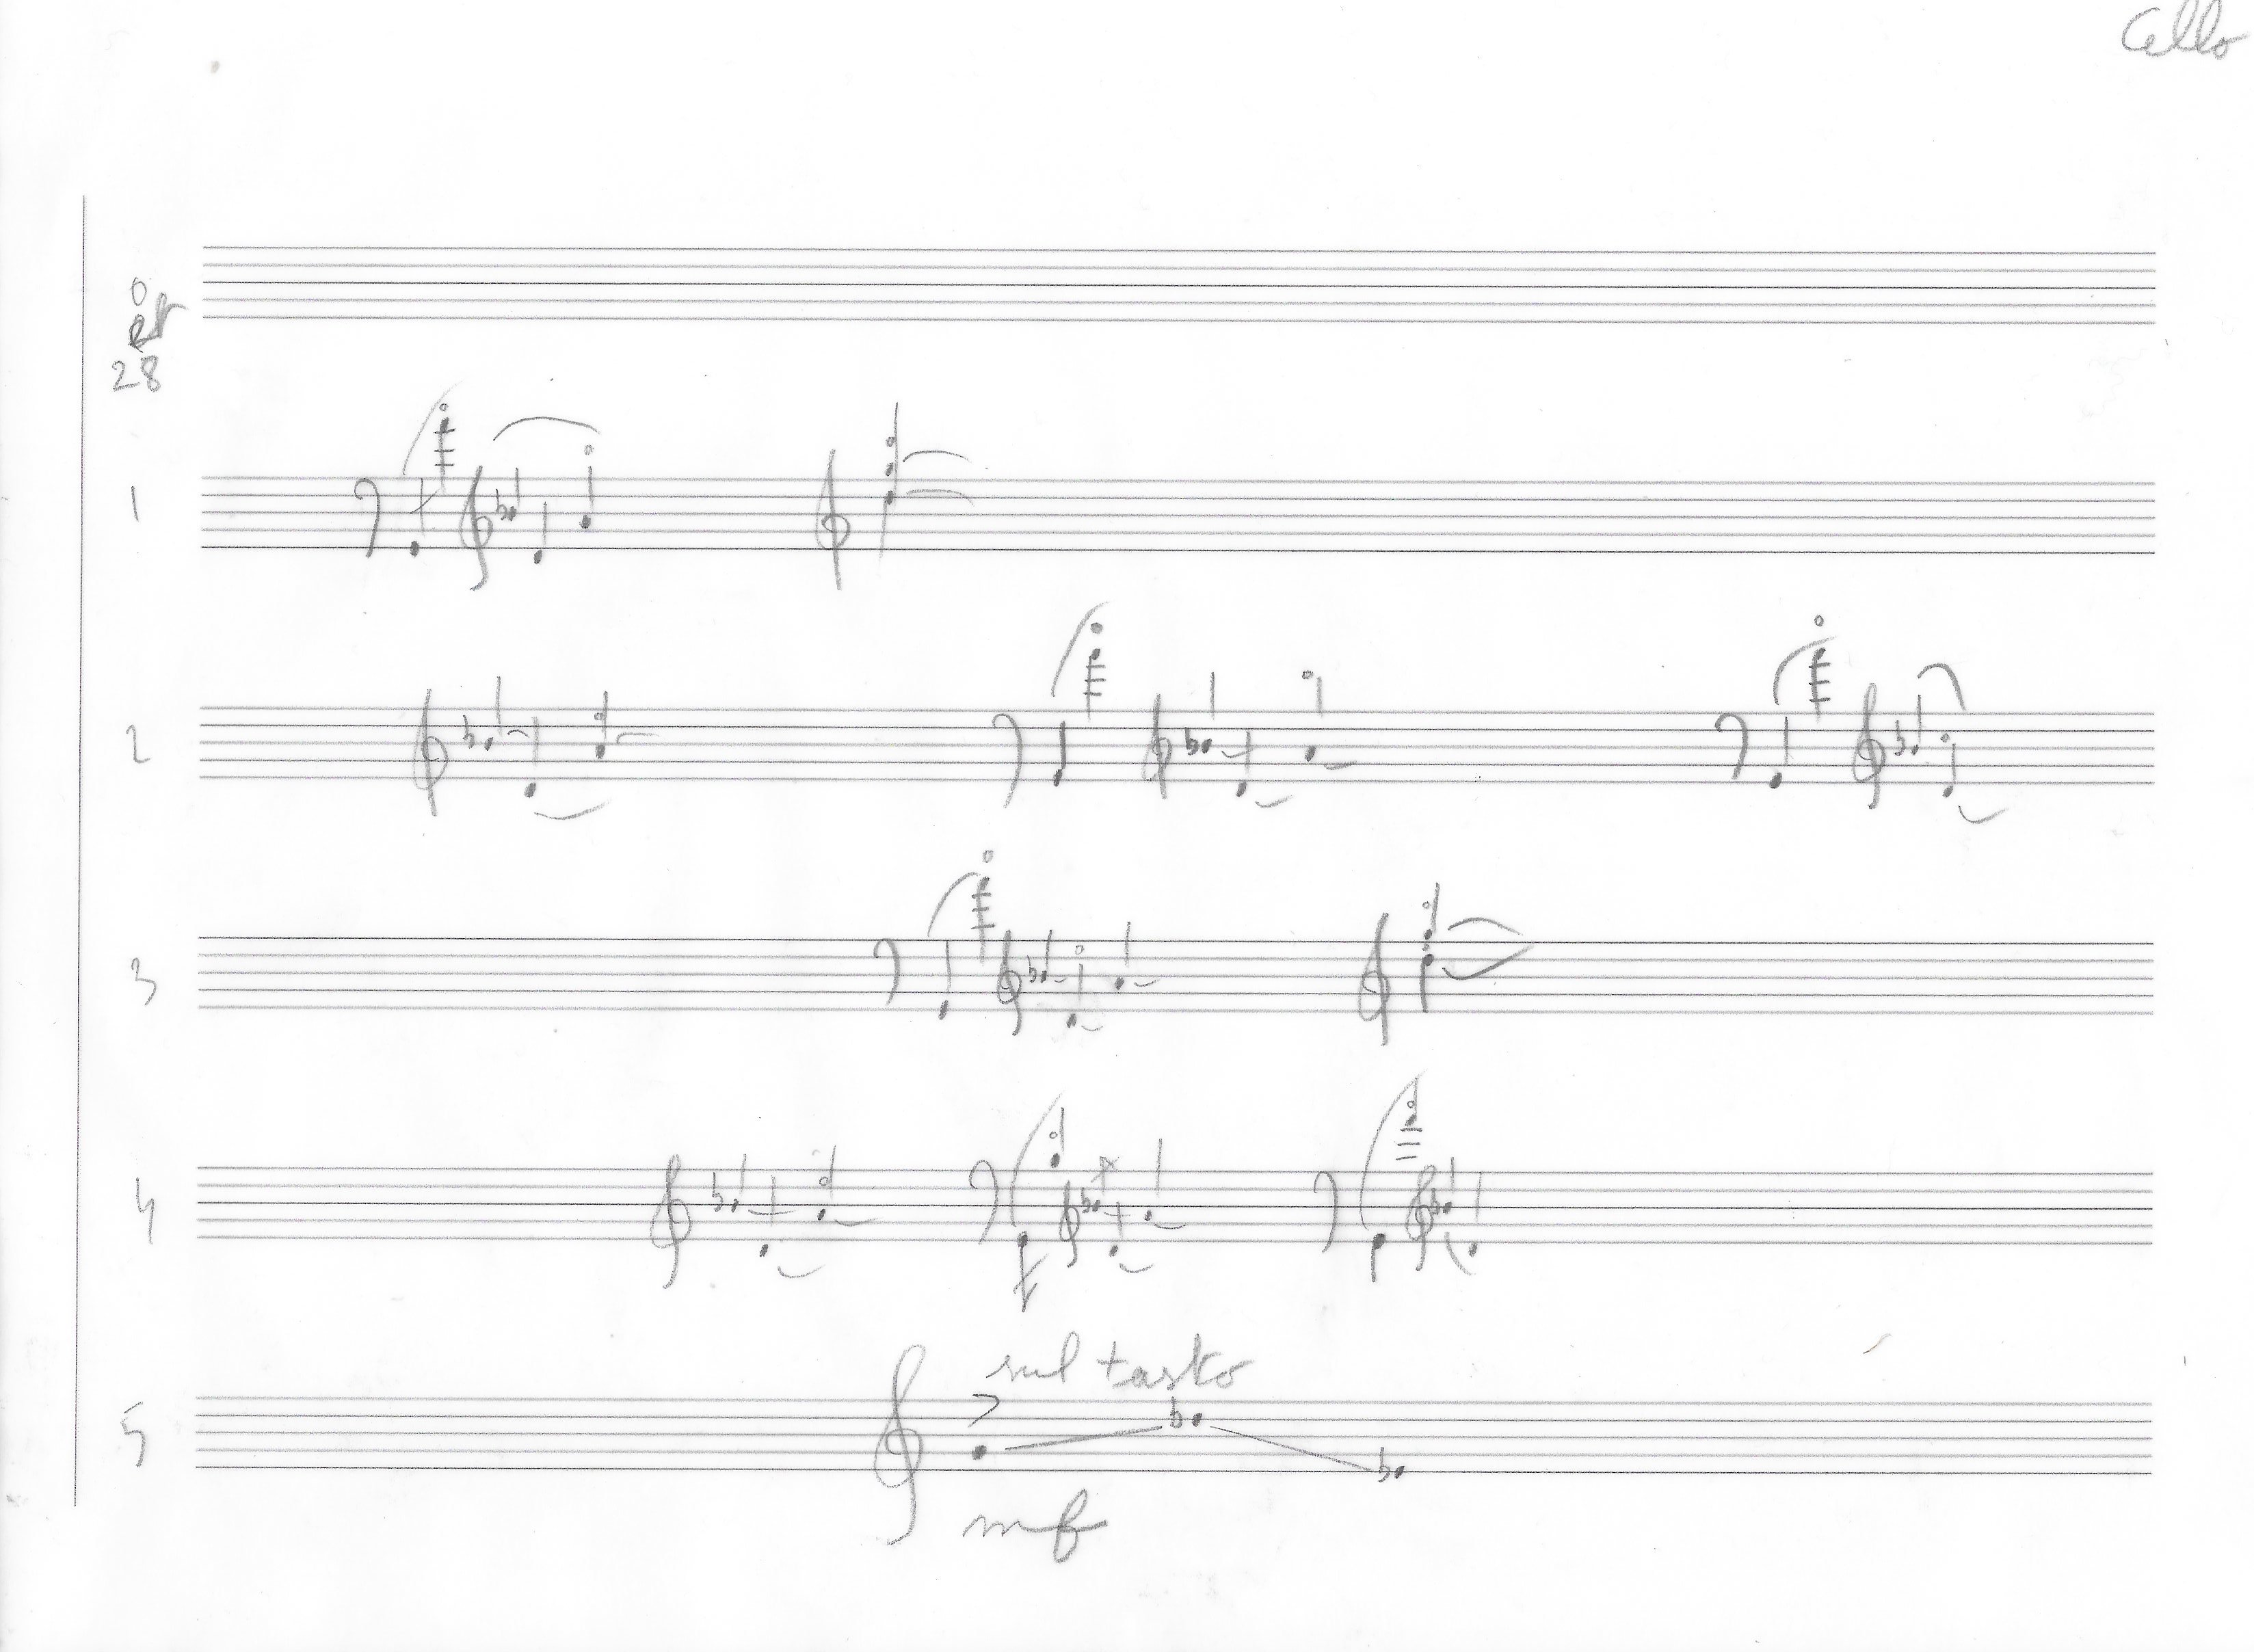 Cello
0
28
1
2
3
4
sul tasto
5
mf